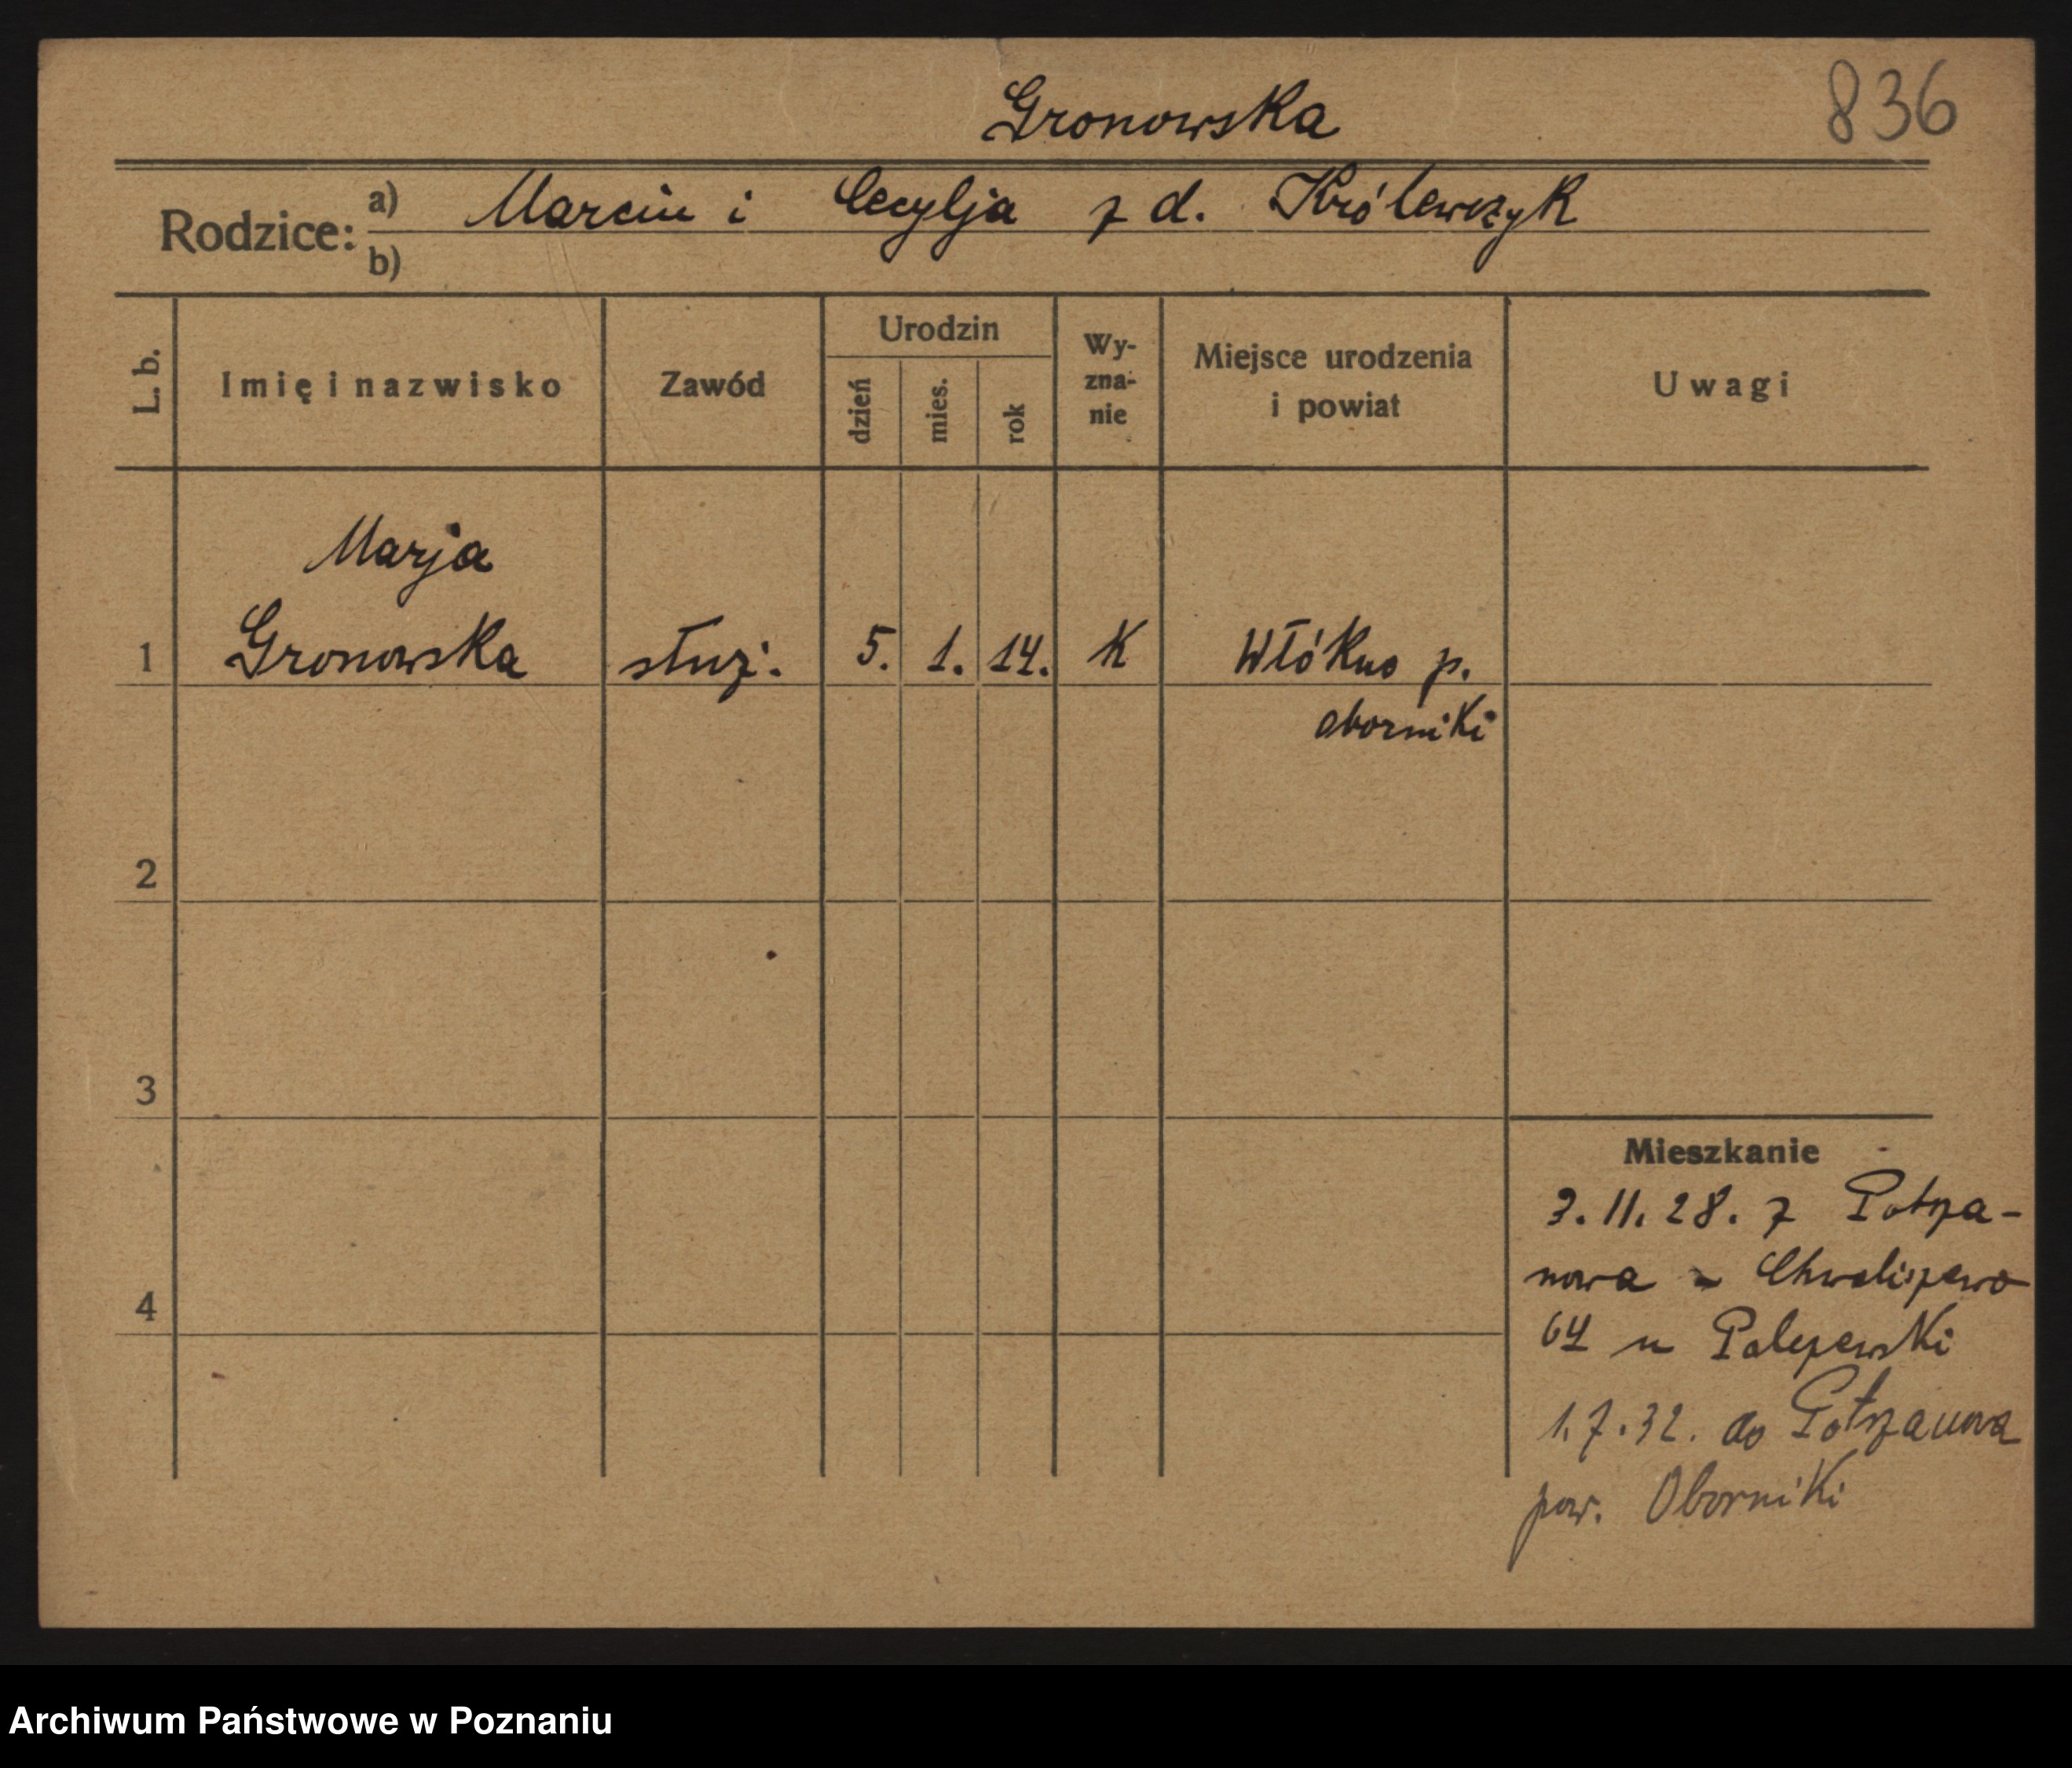 Gronowska
836
Rodzice:
a) Marcin i Cecylja z d. Królewczyk
b)
L. b.
Imię i nazwisko
Zawód
Urodzin
dzień
mies.
rok
Wy-
zna-
nie
Miejsce urodzenia
i powiat
Uwagi
Marja
1 Gronowska służ. 5. 1. 14. K Włókno p.
oborniki
2
3
4
Mieszkanie
3. 11. 28. z Potrza-
nowa - Chwaliszewo
64 u Paleszewski
1. 7. 32. do Potrzanowa
pow. Oborniki
Archiwum Państwowe w Poznaniu